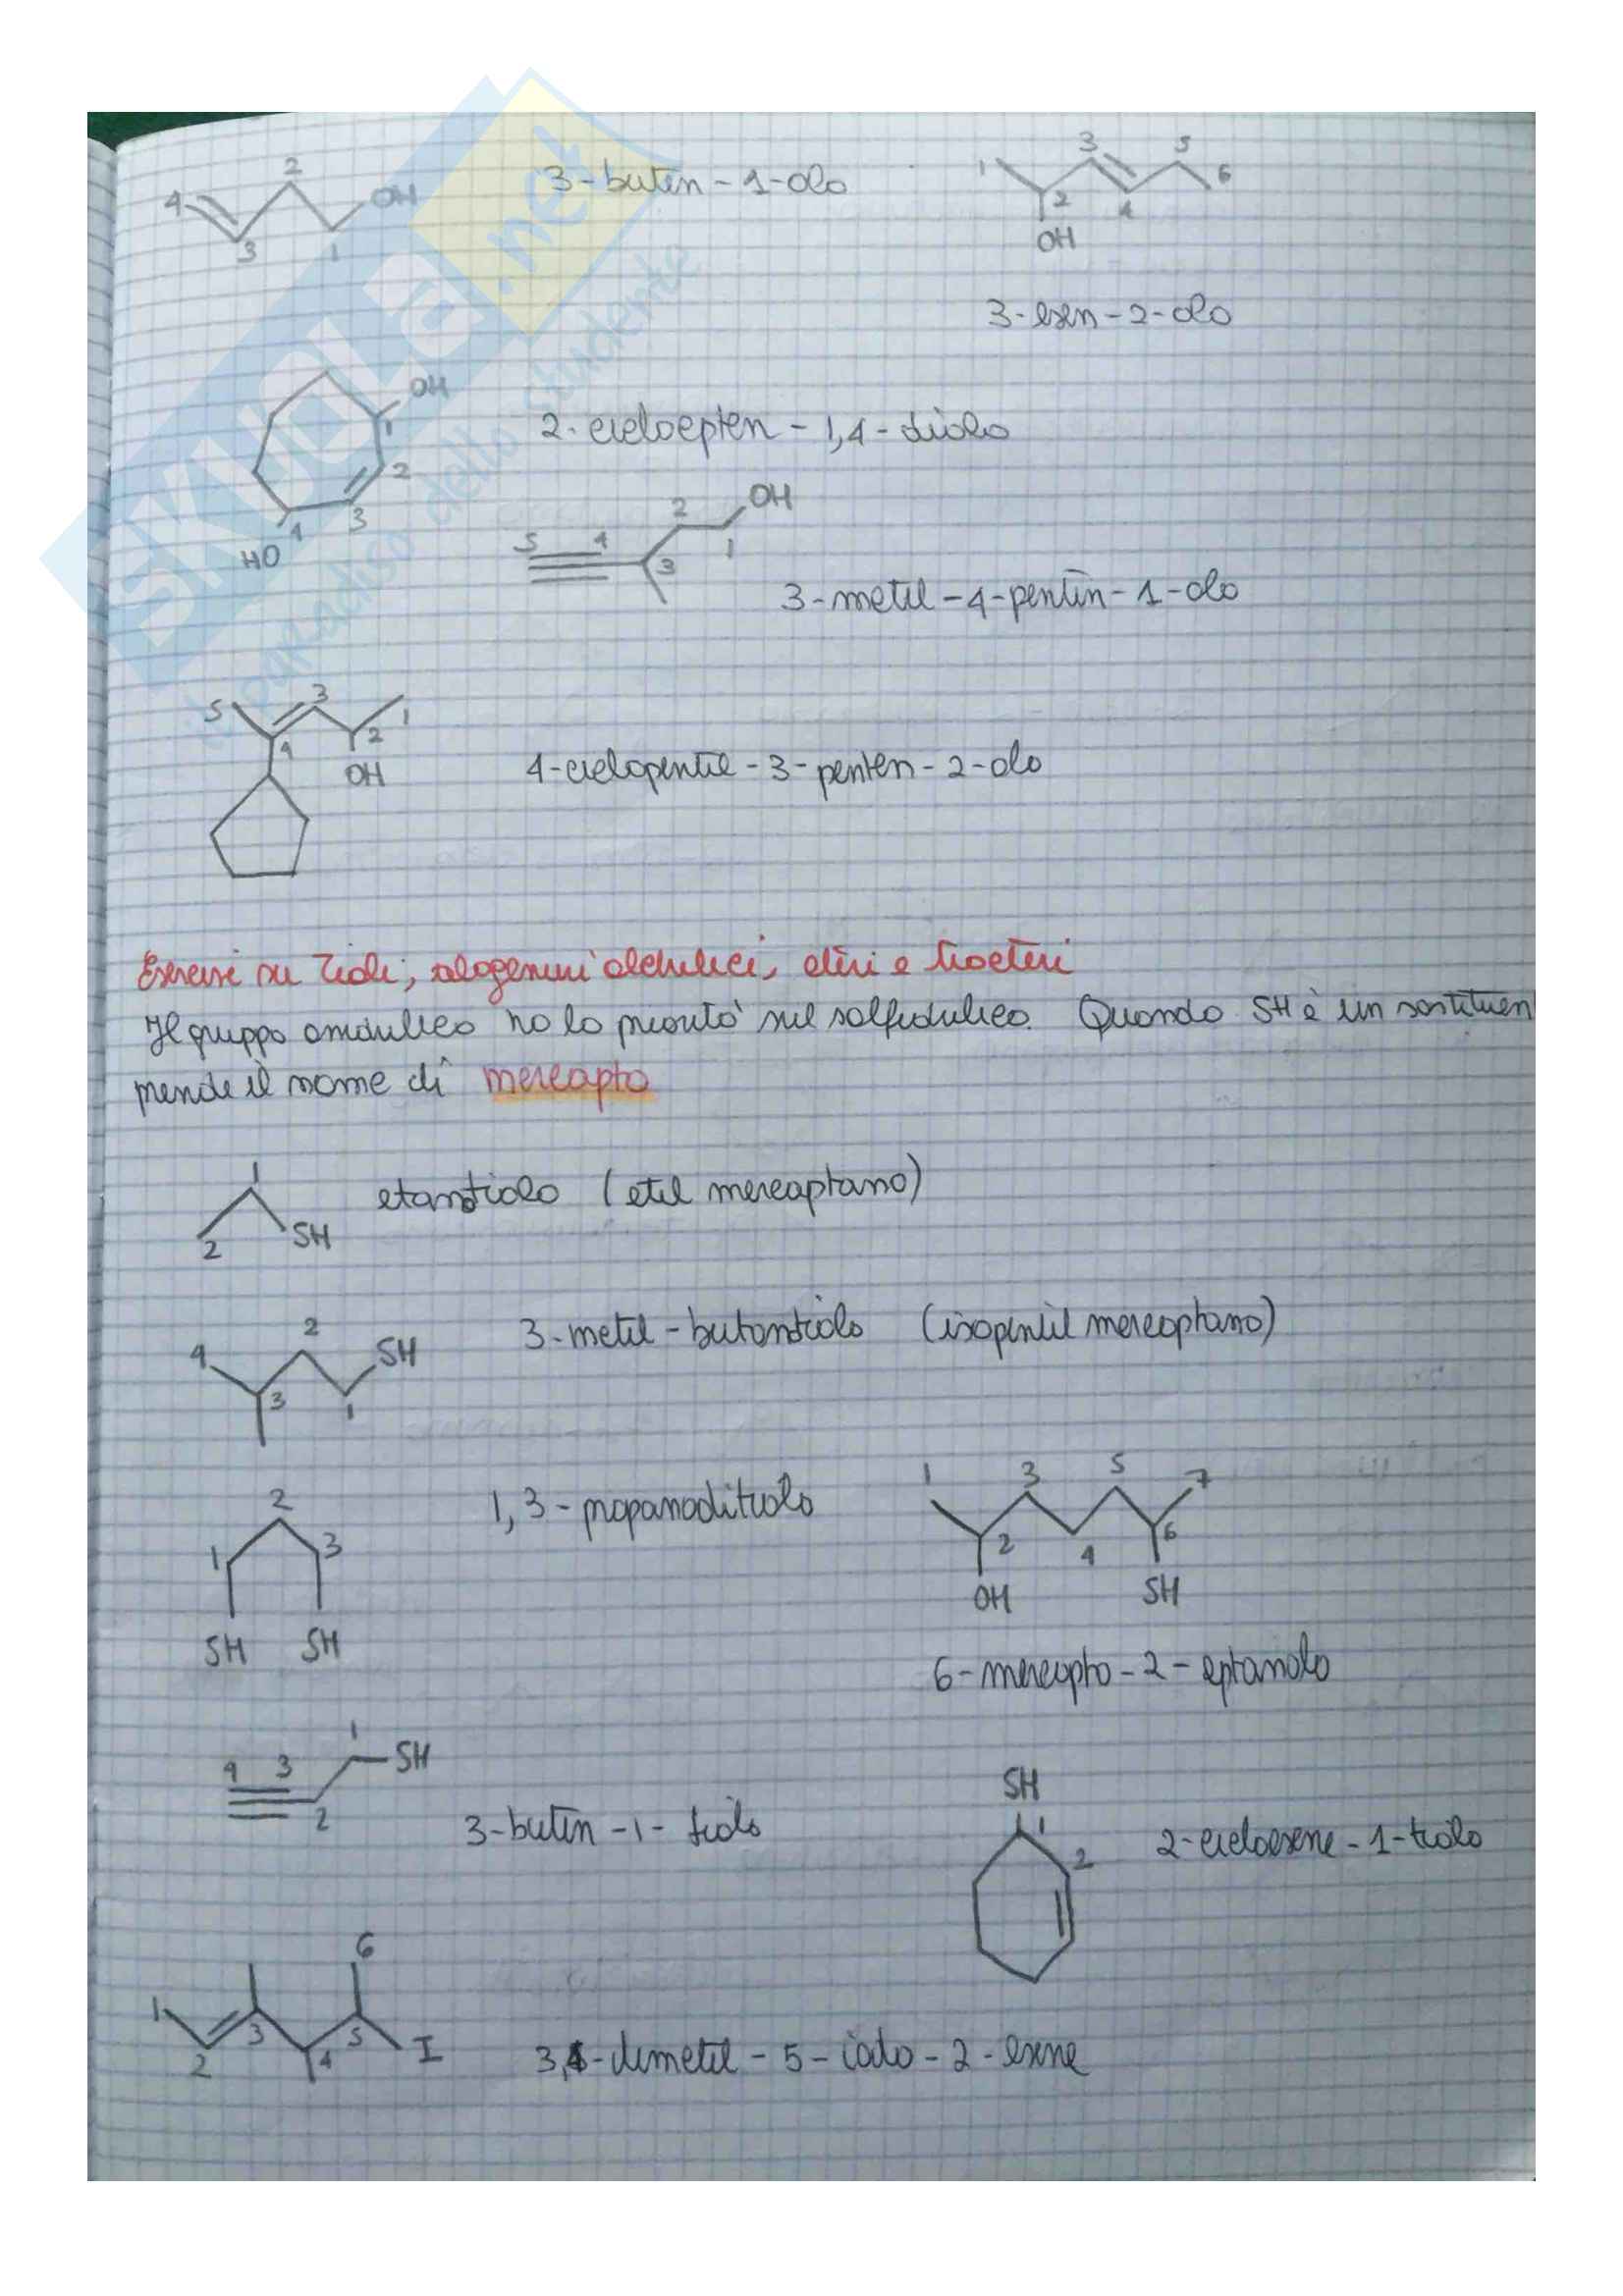 4 2 OH 3 1
3-buten-1-olo
1 3 5 6 2 4 OH
3-esen-2-olo
OH 1 2 3 4 HO
2-cicloepten-1,4-diolo
5 4 2 OH 3 1
3-metil-4-pentin-1-olo
5 3 1 4 2 OH
4-ciclopentil-3-penten-2-olo
Esercizi su Tioli, alogenuri alchilici, eteri e tioeteri
Il gruppo ossidrilico ha la priorità sul solfidrilico. Quando SH è un sostituen
prende il nome di mercapto
1 2 SH
etantiolo (etil mercaptano)
4 2 SH 3 1
3-metil-butantiolo (isopentil mercaptano)
2 1 3 SH SH
1,3-propanoditiolo
1 3 5 7 2 4 6 OH SH
6-mercapto-2-eptanolo
4 3 1 SH 2
3-butin-1-tiolo
SH 1 2
2-cicloesene-1-tiolo
6 1 3 5 2 4 I
3,4-dimetil-5-iodo-2-esene
SKUOLA.net
il paradiso dello studente